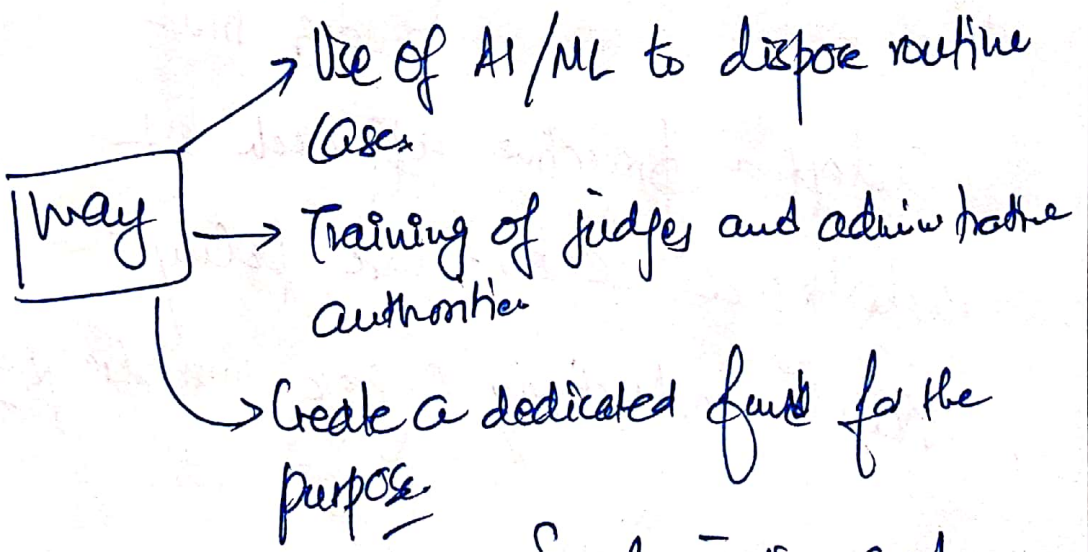 Use of AI/ML to dispose routine
cases
way
Training of judges and administrative
authorities
Create a dedicated fund for the
purpose